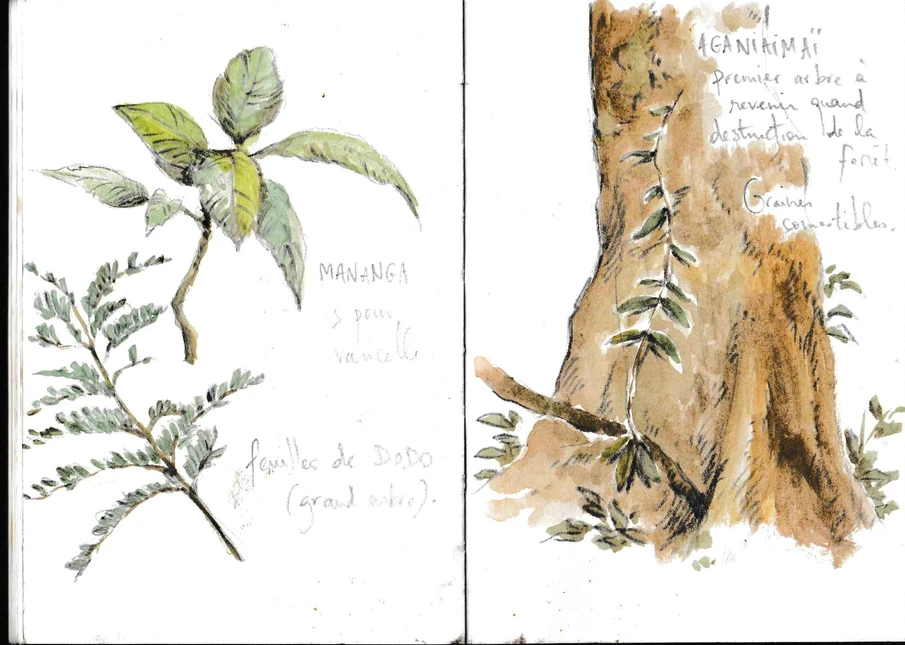 MANANGA
pour
feuilles de DODO
(grand arbre).
AGANIAIMAÏ
premier arbre à
revenir quand
destruction de la
forêt.
Graines
comestibles.